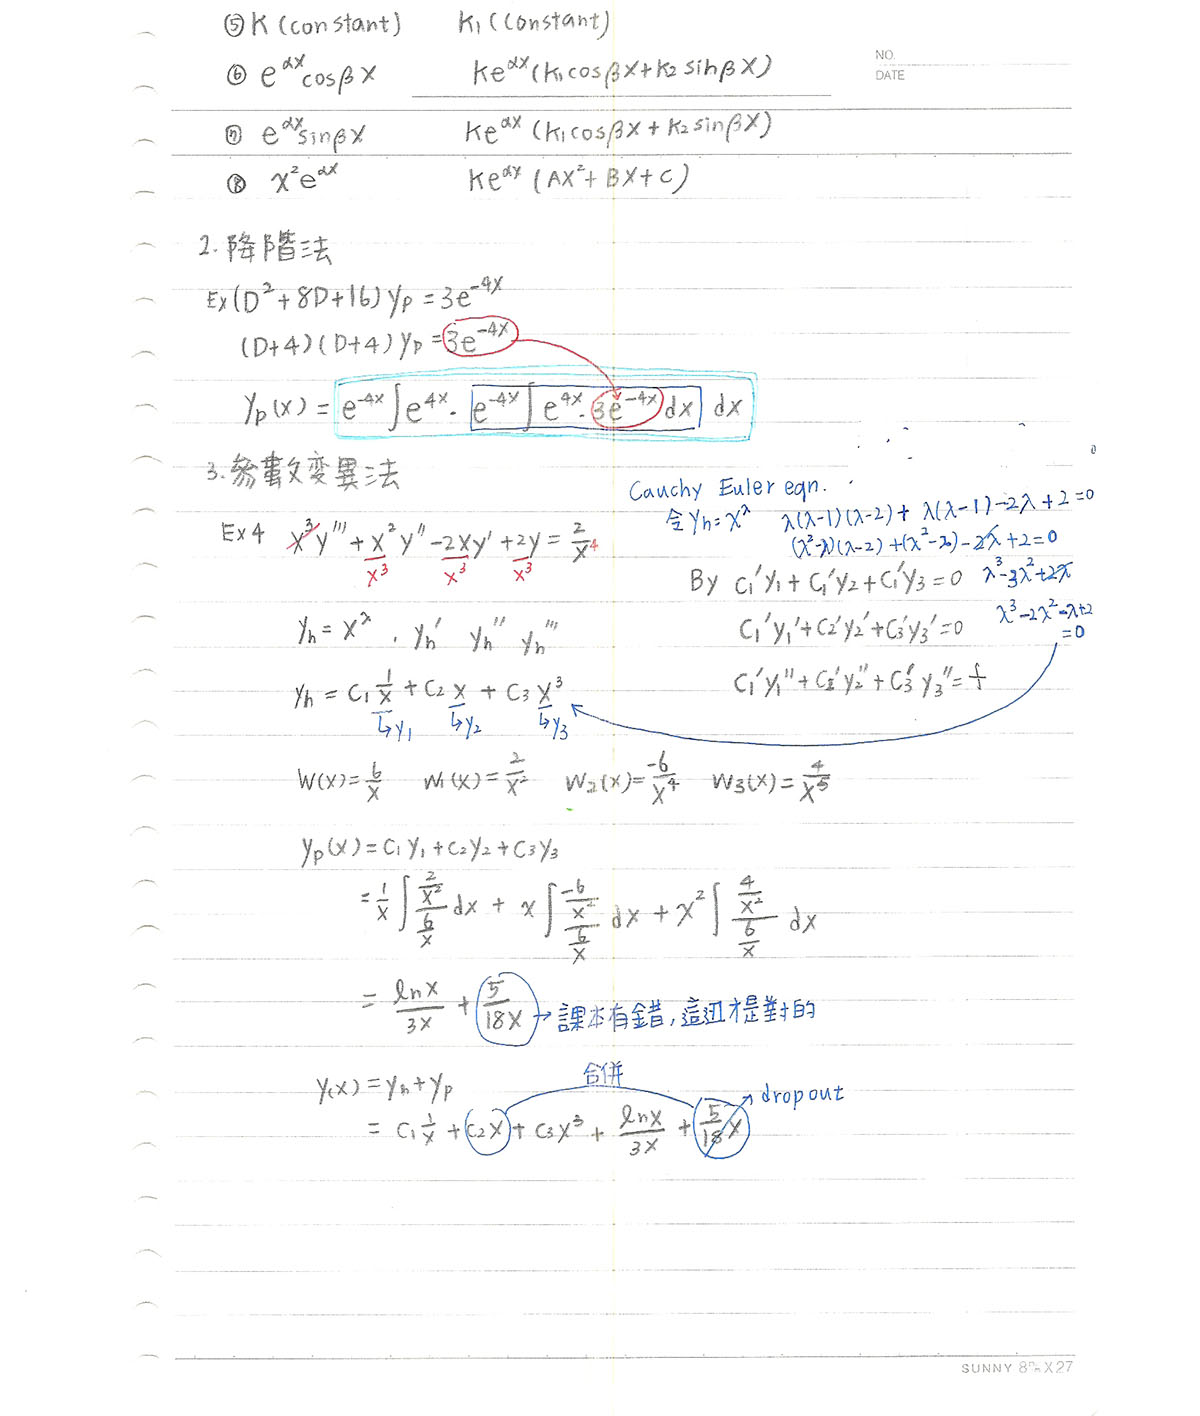 ⑤ K (constant) K₁ (constant)
NO.
⑥ e^αx cosβx Ke^αx (K₁cosβx+K₂sinβx)
DATE
⑦ e^αx sinβx Ke^αx (K₁cosβx+K₂sinβx)
⑧ x²e^αx Ke^αx (Ax²+Bx+C)
2. 降階法
Ex (D²+8D+16) yp = 3e^-4x
(D+4)(D+4) yp = 3e^-4x
yp(x) = e^-4x ∫ e^4x · e^-4x ∫ e^4x · 3e^-4x dx dx
3. 參數變異法
Cauchy Euler eqn.
令 yh = x^λ λ(λ-1)(λ-2) + λ(λ-1) -2λ+2=0
(λ²-λ)(λ-2) + (λ²-λ) -2λ+2=0
Ex 4 x³y''' + x²y'' - 2xy' + 2y = 2/x⁴
x³ x³ x³
By C₁'y₁+C₁'y₂+C₁'y₃ = 0 λ³-3λ²+2λ
yh = x^λ , yh' yh'' yh'''
C₁'y₁'+C₂'y₂'+C₃'y₃'=0 λ³-2λ²-λ+2
=0
yh = C₁ 1/x + C₂ x + C₃ x³
C₁'y₁''+C₂'y₂''+C₃'y₃''=f/1
↳y₁ ↳y₂ ↳y₃
W(x)=6/x W₁(x)=2/x² W₂(x)=-6/x⁴ W₃(x)=4/x⁵
yp(x)=C₁y₁+C₂y₂+C₃y₃
= 1/x ∫ (2/x²)/(6/x) dx + x ∫ (-6/x²)/(6/x) dx + x² ∫ (4/x²)/(6/x) dx
= lnx/3x + 5/18x → 課本有錯, 這邊才是對的
合併
y(x) = yh+yp
dropout
= C₁ 1/x + C₂x + C₃x³ + lnx/3x + 5/18x
SUNNY 8m/m X 27